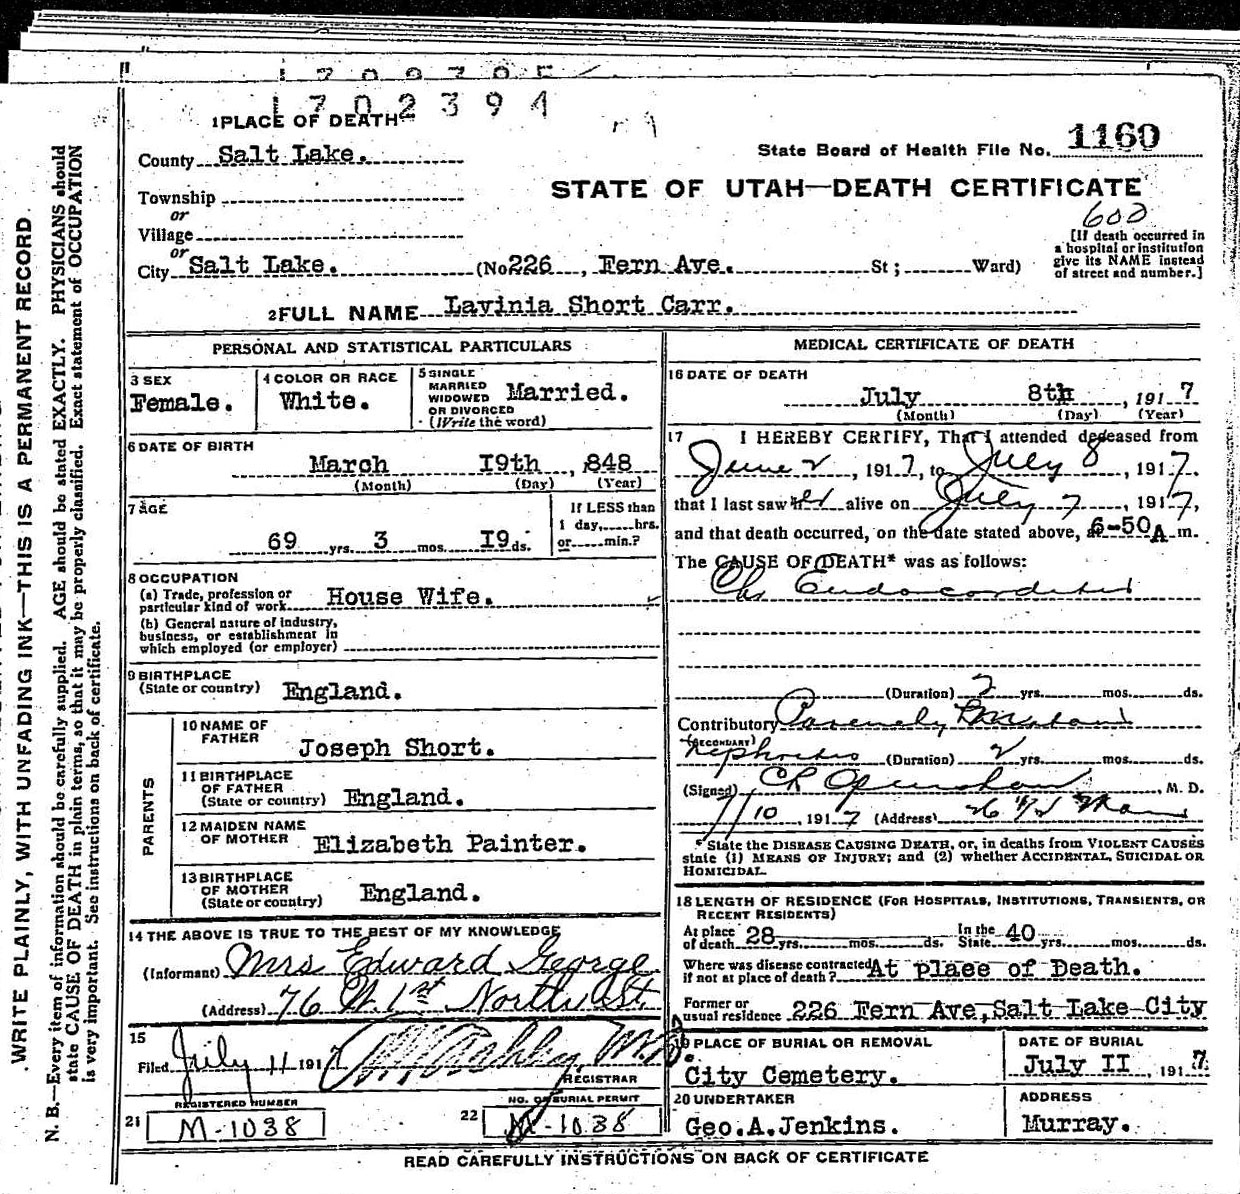 1702394
1 PLACE OF DEATH
County Salt Lake.
State Board of Health File No. 1160
Township
STATE OF UTAH—DEATH CERTIFICATE
or
Village
600
or
City Salt Lake. (No 226, Fern Ave. St; Ward)
[If death occurred in a hospital or institution give its NAME instead of street and number.]
2 FULL NAME Lavinia Short Carr.
PERSONAL AND STATISTICAL PARTICULARS
3 SEX
Female.
4 COLOR OR RACE
White.
5 SINGLE
MARRIED
WIDOWED
OR DIVORCED
(Write the word)
Married.
6 DATE OF BIRTH
March I9th, 848
(Month) (Day) (Year)
7 AGE
69 yrs. 3 mos. I9 ds.
If LESS than
1 day, hrs.
or min.?
8 OCCUPATION
(a) Trade, profession or
particular kind of work House Wife.
(b) General nature of industry,
business, or establishment in
which employed (or employer)
9 BIRTHPLACE
(State or country) England.
PARENTS
10 NAME OF
FATHER Joseph Short.
11 BIRTHPLACE
OF FATHER
(State or country) England.
12 MAIDEN NAME
OF MOTHER Elizabeth Painter.
13 BIRTHPLACE
OF MOTHER
(State or country) England.
14 THE ABOVE IS TRUE TO THE BEST OF MY KNOWLEDGE
(Informant) Mrs Edward George
(Address) 76 W. 1st North St
15
Filed July 11 1917
REGISTRAR
REGISTERED NUMBER
21 M-1038
NO. OF BURIAL PERMIT
22 M-1038
MEDICAL CERTIFICATE OF DEATH
16 DATE OF DEATH
July 8th, 1917
(Month) (Day) (Year)
17 I HEREBY CERTIFY, That I attended deceased from
June 2, 1917, to July 8, 1917.
that I last saw her alive on July 7, 1917,
and that death occurred, on the date stated above, at 6-50 A m.
The CAUSE OF DEATH* was as follows:
Chr Endocarditis
(Duration) 2 yrs. mos. ds.
Contributory
(SECONDARY)
nephritis (Duration) 2 yrs. mos. ds.
(Signed) , M. D.
7/10, 1917 (Address)
* State the DISEASE CAUSING DEATH, or, in deaths from VIOLENT CAUSES
state (1) MEANS OF INJURY; and (2) whether ACCIDENTAL, SUICIDAL OR
HOMICIDAL.
18 LENGTH OF RESIDENCE (FOR HOSPITALS, INSTITUTIONS, TRANSIENTS, OR
RECENT RESIDENTS)
At place
of death 28 yrs. mos. ds. In the State 40 yrs. mos. ds.
Where was disease contracted
if not at place of death? At plaee of Death.
Former or
usual residence 226 Fern Ave, Salt Lake City
19 PLACE OF BURIAL OR REMOVAL
City Cemetery.
DATE OF BURIAL
July II, 1917
20 UNDERTAKER
Geo.A.Jenkins.
ADDRESS
Murray.
READ CAREFULLY INSTRUCTIONS ON BACK OF CERTIFICATE
WRITE PLAINLY, WITH UNFADING INK—THIS IS A PERMANENT RECORD
N. B.—Every item of information should be carefully supplied. AGE should be stated EXACTLY. PHYSICIANS should
state CAUSE OF DEATH in plain terms, so that it may be properly classified. Exact statement of OCCUPATION
is very important. See instructions on back of certificate.